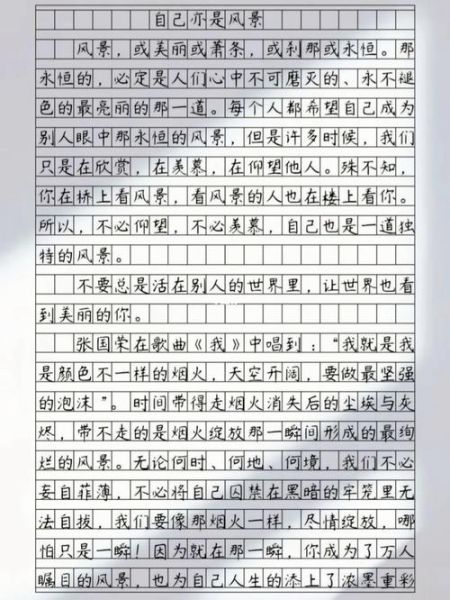 自己亦是风景
风景，或美丽或萧条，或刹那或永恒。那
永恒的，必定是人们心中不可磨灭的、永不褪
色的最亮丽的那一道。每个人都希望自己成为
别人眼中那永恒的风景，但是许多时候，我们
只是在欣赏，在羡慕，在仰望他人。殊不知，
你在桥上看风景，看风景的人也在楼上看你。
所以，不必仰望，不必羡慕，自己也是一道独
特的风景。
不要总是活在别人的世界里，让世界也看
到美丽的你。
张国荣在歌曲《我》中唱到：“我就是我
是颜色不一样的烟火，天空开阔，要做最坚强
的泡沫”。时间带得走烟火消失后的尘埃与灰
烬，带不走的是烟火绽放那一瞬间形成的最绚
烂的风景。无论何时、何地、何境，我们不必
妄自菲薄，不必将自己囚禁在黑暗的牢笼里无
法自拔，我们要像那烟火一样，尽情绽放，哪
怕只是一瞬！因为就在那一瞬，你成为了万人
瞩目的风景，也为自己人生的添上了浓墨重彩